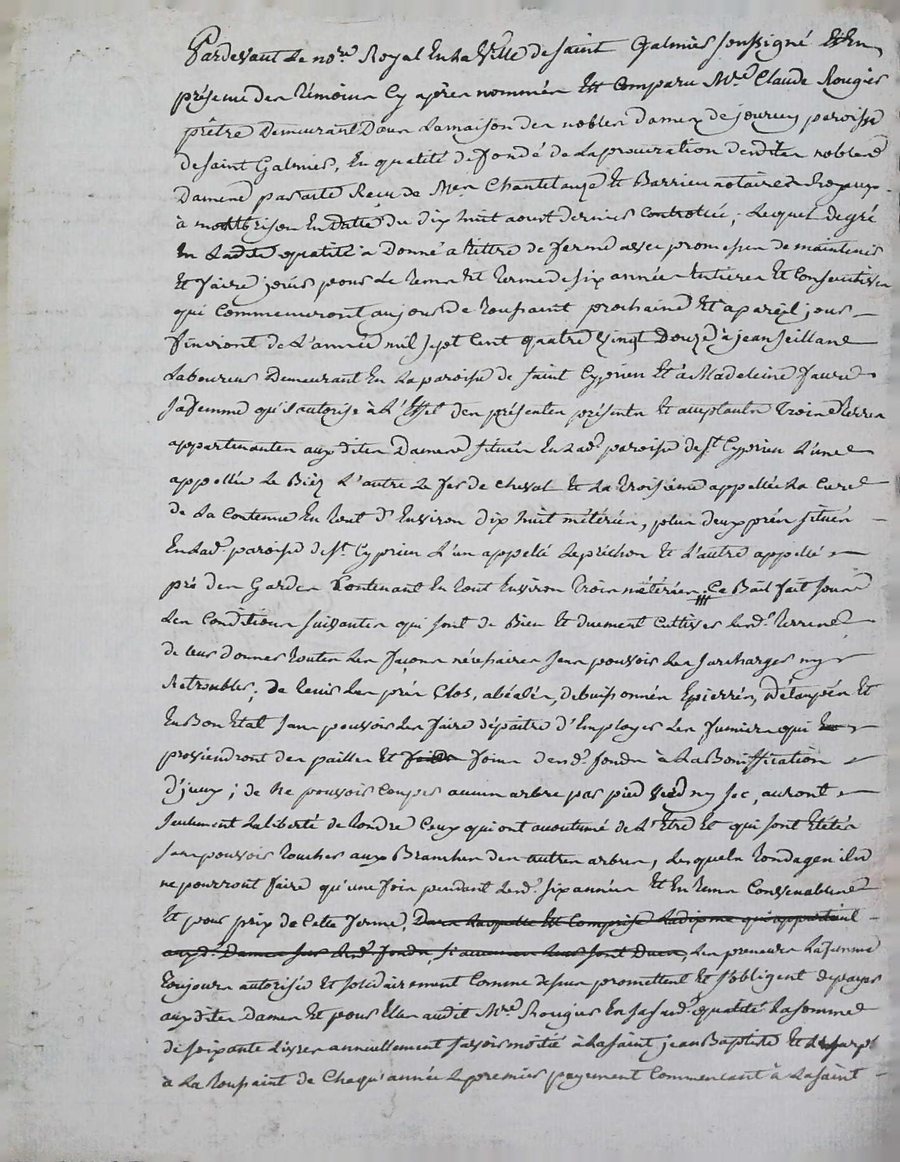 Pardevant Le no.re Royal En La Ville de saint Galmier soussigné Et En
présence des témoins Cy après nommés Est Comparu M.re Claude Rougier
prêtre Demeurant Dans La maison des nobles Dames de jourcey paroisse
de saint Galmier, En qualité de fondé de La procuration desdites nobles
Dames par acte Recu de Mes Chantelauze Et Barrieu notaires Royaux
à montbrison En datte du dix huit aoust dernier Controllée, Lequel de gré
En Ladte qualité a Donné a tittre de ferme avec promesses de maintenir
Et faire jouir pour Le tems Et terme de six années Entieres Et Consecutives
qui Commenceront au jour de toussaint prochaine Et a pareil jour
finiront de L'année mil sept Cent quatre vingt douze à jean Seillane
Laboureur Demeurant En La paroisse de saint Cyprien Et à Madeleine faure
sa femme qu'il autorise à L'Effet des présentes présents Et acceptants trois terres
appartenantes auxdites Dames situées En Lad.e paroisse de St Cyprien L'une
appellée Le Biez L'autre Le fer de cheval Et La troisième appellée La Cure
de La Contenue En tout d'Environ dix huit métérées, plus deux prés situés
En Lad.e paroisse de St. Cyprien L'un appellé Le pêchon Et L'autre appellé
pré des Gardes Contenant En tout Environ trois métérées, Ce Bail fait sous
Les Conditions suivantes qui sont de Bien Et duement Cultiver Lesd.es terres
de leur donner toutes Les façons nécéssaires sans pouvoir Les surcharger ny
Retroubler; de tenir Les prés Clos, abéalés, debuissonnés Epierrés, Détaupés Et
En Bon Etat sans pouvoir Les faire dépaître d'Employer Les fumiers qui
proviendront des pailles Et foins desd.s fonds à La Boniffication
d'jceux; de Ne pouvoir couper aucun arbre par pied verd ny sec, auront
seulement La liberté de tondre Ceux qui ont acoutumé de L'Etre Et qui sont Etêtés
sans pouvoir toucher aux Branches des autres arbres, Lesquels tondages ils
ne pourront faire qu'une fois pendant Lesd.es six années Et En tems Convenables
Et pour prix de Cette ferme, Dans Laquelle Est Comprise La dixme qui appartient
auxd. Dames sur Lesd. fonds, si aucunes Leur sont Dues, Les preneurs La femme
toujours autorisée Et solidairement Comme dessus promettent Et s'obligent de payer
auxdites Dames Et pour Elles audit M.re Rougier En sa sus.d. qualité La somme
de soixante Livres annuellement savoir moitié à La saint jean Baptiste Et
à La toussaint de Chaqu'année Le premier payement Commencant à La saint